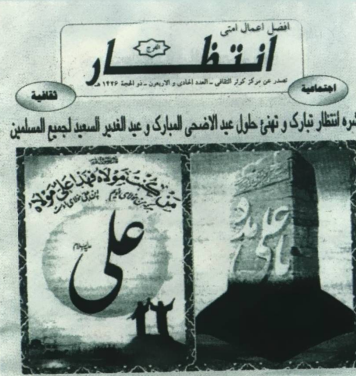 افضل اعمال امتى
انتظار
الفرج
تصدر عن مركز كرار الثقافي - العدد الحادي و الاربعون - ذو الحجة ١٤٢٦ هـ
اجتماعية
ثقافية
شره انتظار تبارك و تهنئ حلول عيد الاضحى المبارك و عيد الغدير السعيد لجميع المسلمين
من كنت مولاه فهذا علي مولاه
علي
يا علي مدد